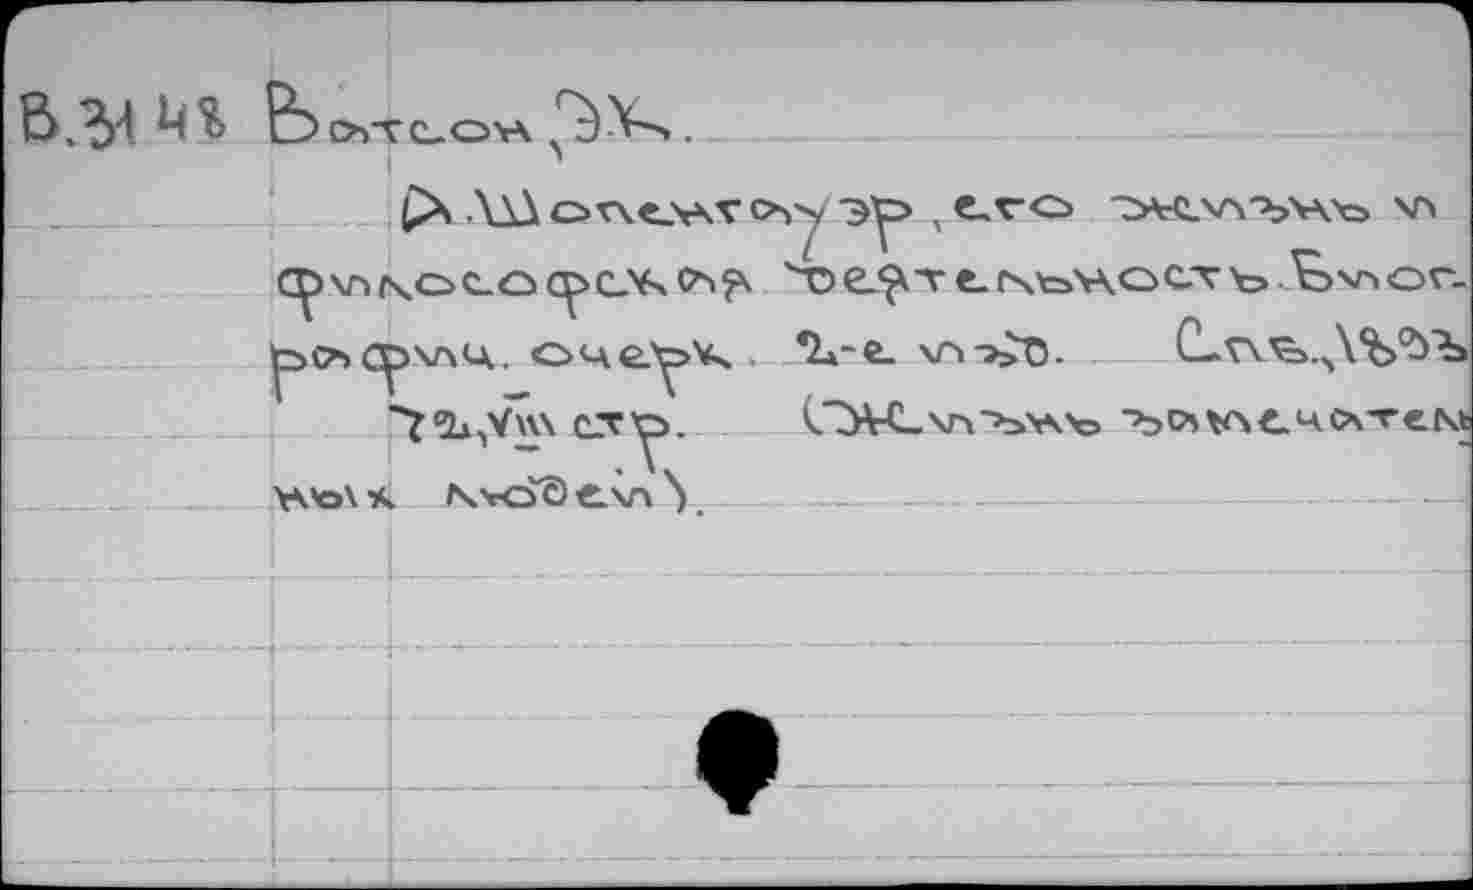 В.31 48 Ватсон, Э.К.
А.Шопенгауэр, его жизнь и
философская деятельность. Биог-
рафич. очерк. 2-е изд. Спб., 1893
72, VIII стр. (Жизнь замечатель
ных людей).